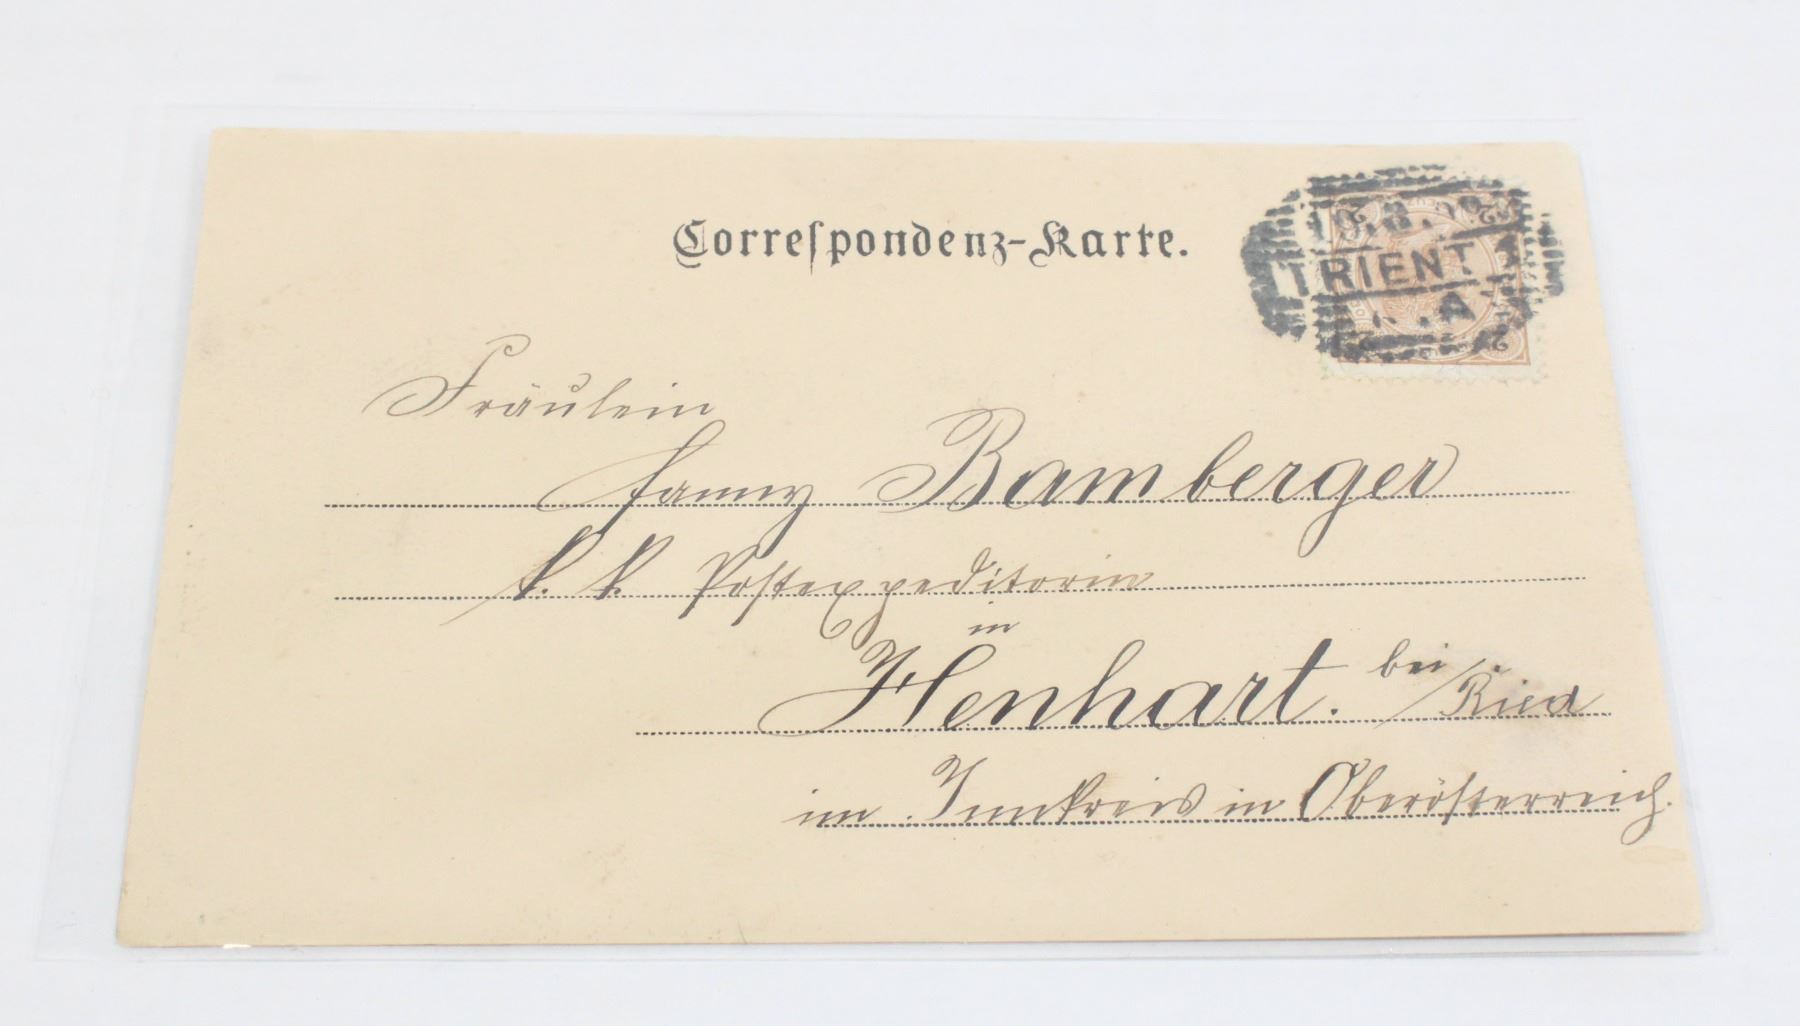 Correspondenz-Karte.
19.8.
TRIENT 1
A
2 2
2 2
Fräulein
Fanny Bamberger
k. k. Postexpeditorin
in
Henhart. bei Ried
im Innkreis in Oberösterreich.